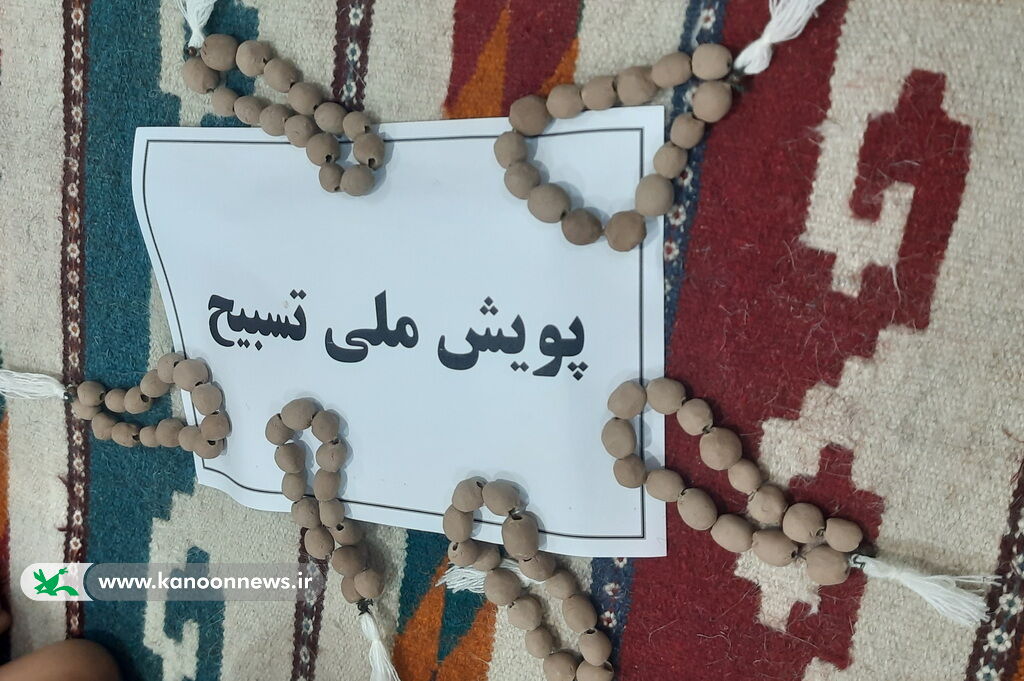 پویش ملی تسبیح
www.kanoonnews.ir